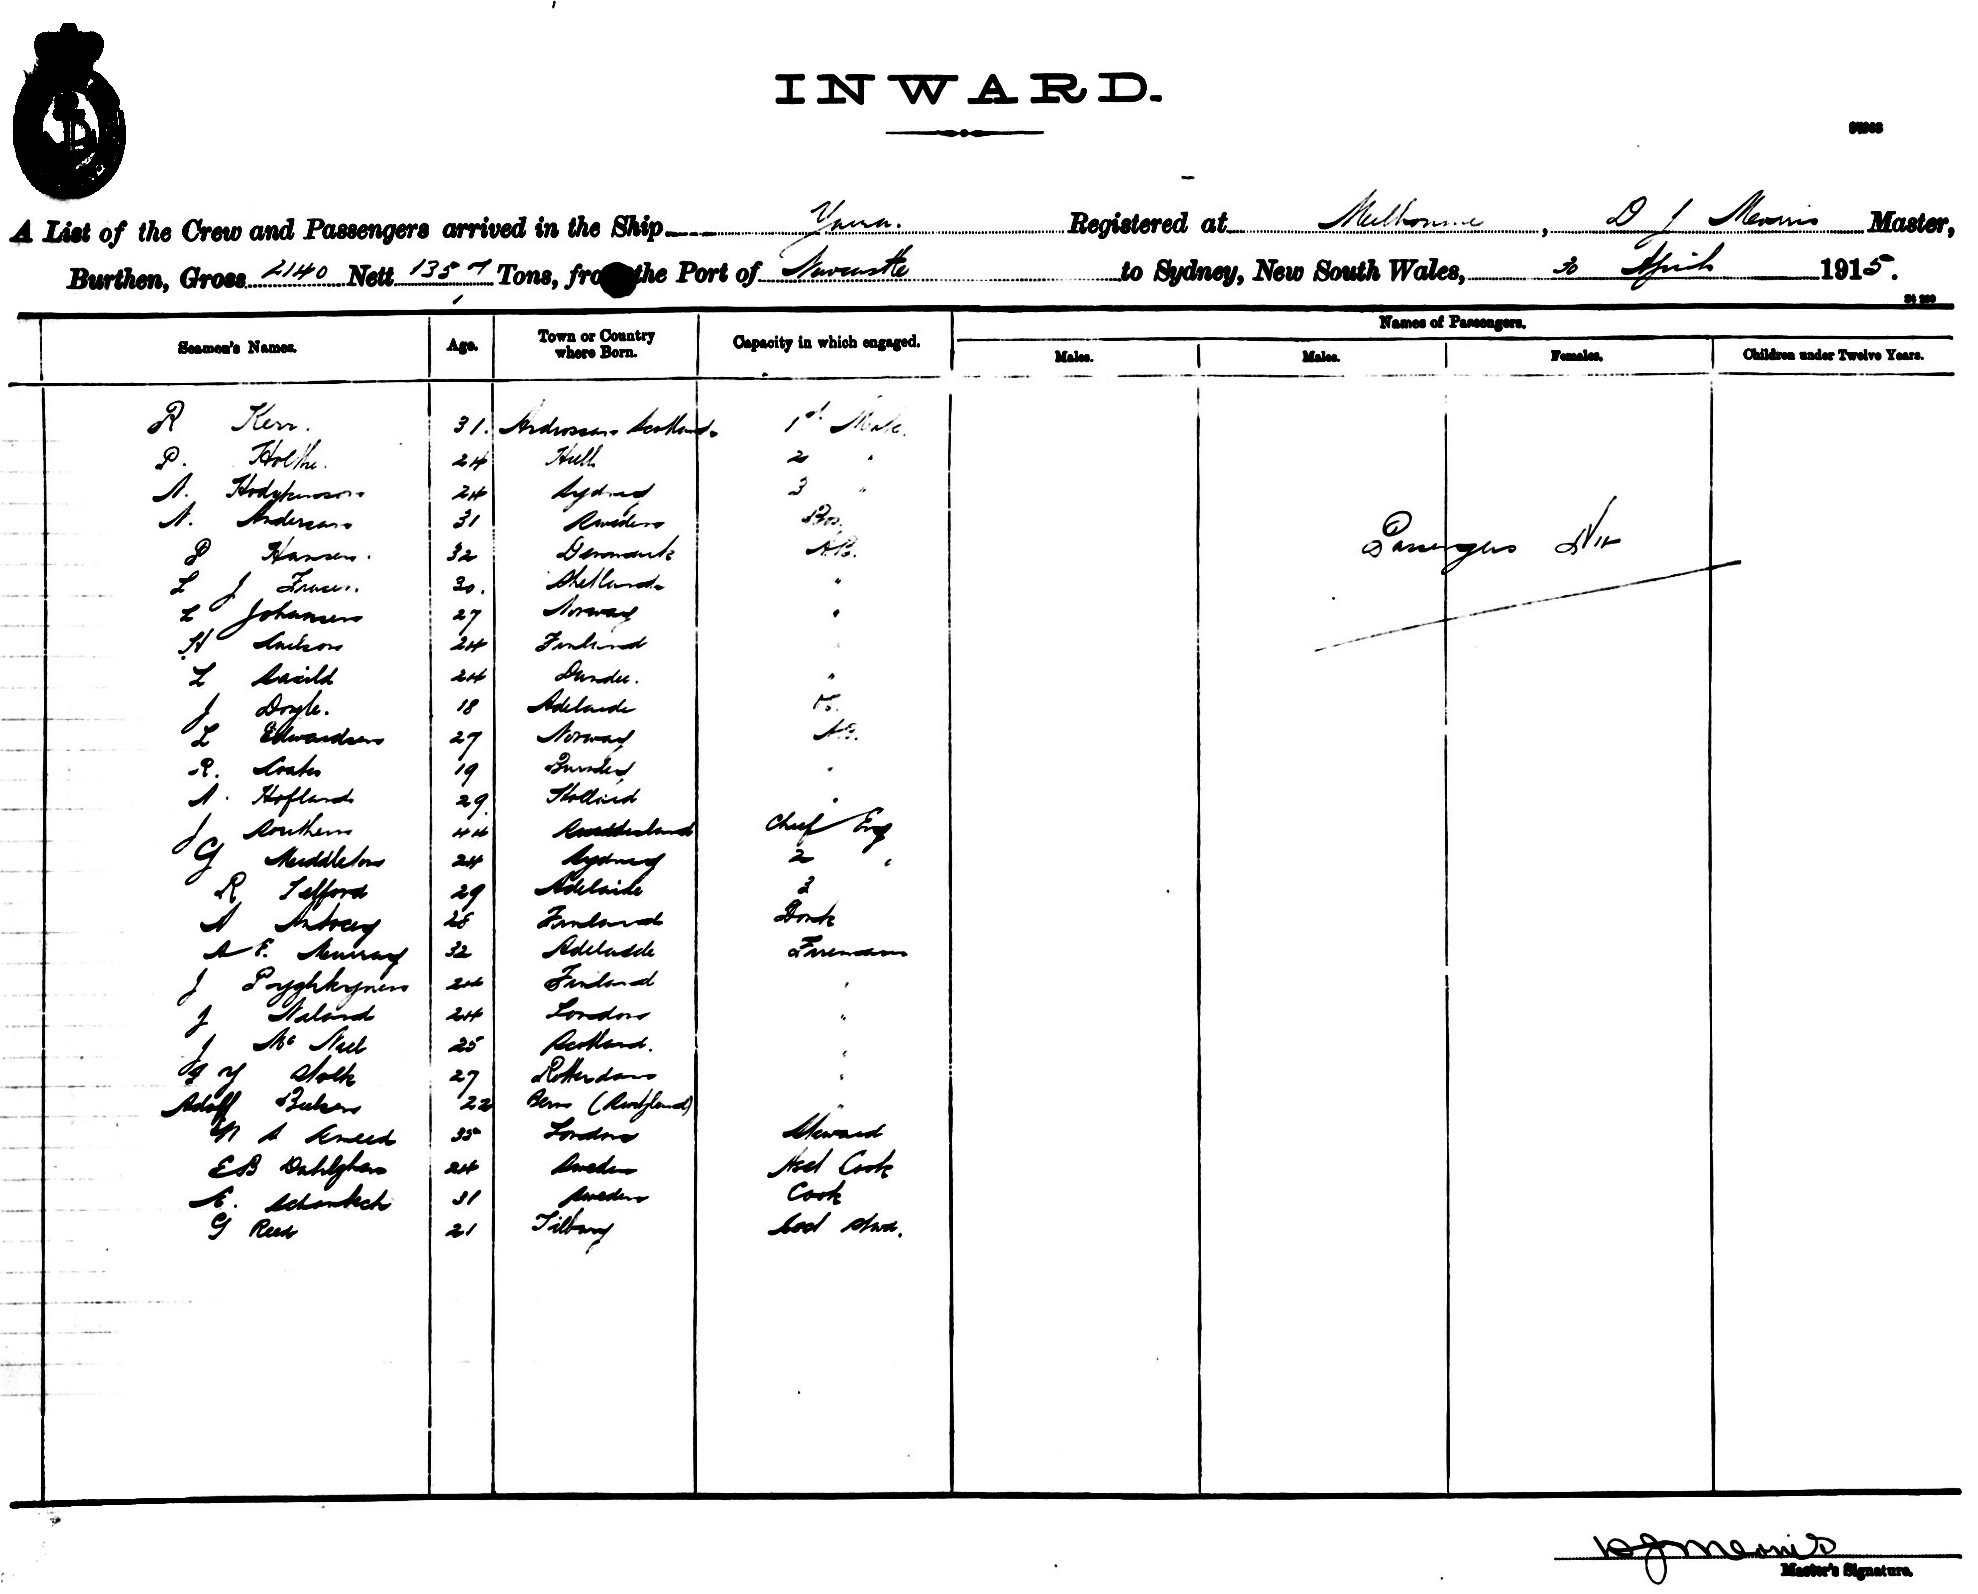 INWARD.
A List of the Crew and Passengers arrived in the Ship Yarra. Registered at Melbourne, D J Mearns Master,
Burthen, Gross 2140 Nett 1357 Tons, from the Port of Newcastle to Sydney, New South Wales, 30 April 1915.
Seamen's Names. Age. Town or Country where Born. Capacity in which engaged. Names of Passengers.
Males. Males. Females. Children under Twelve Years.
R Kerr. 31. Ardrossan Scotland 1st Mate.
P. 24 Hull 2 "
A. Hodgkinson 24 Sydney 3 "
N. Anderson 31 Sweden Bos.
P Hansen. 32 Denmark A.B.
Passengers Nil
L J Fraser. 30. Shetlands "
L Johansen 27 Norway "
H 24 Finland
L 24 Dundee. "
J Doyle. 18 Adelaide
L Edwardsen 27 Norway A.B.
R. Coates 19 "
A. Hofland 29 Holland "
J Southern 44 Sunderland Chief Eng
G Middleton 24 Sydney 2 "
R Telford 29 Adelaide 3
A 28 Finland Donk
A E. Murray 32 Adelaide Fireman
J 24 Finland "
J Naland 24 London "
J Mc Neil 25 Scotland. "
Stolk 27 Rotterdam "
Adolf 22 Bern "
A Sneed 35 London Steward
E B Dahlghen 24 Sweden Asst Cook
A. 31 Sweden Cook
G Reed 21 Tilbury Stwd.
D J Mearns
Master's Signature.